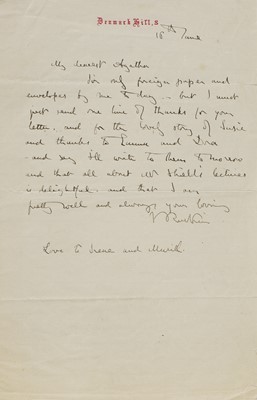 Denmark Hill, S.
18th June
My dearest Agatha
I've only foreign paper and
envelopes by me to day - but I must
just send one line of thanks for your
letter. and for the lovely story of Susie
and thanks to and Dora
- and say I'll write to them tomorrow
and that all about Mr Shield's lectures
is delightful - and that I am
pretty well and always your loving
J Ruskin
Love to and